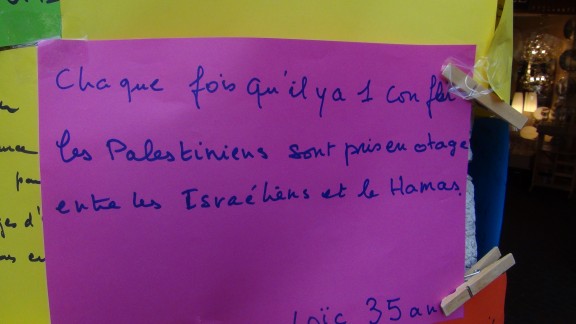 Chaque fois qu'il y a 1 confli
les Palestiniens sont pris en otage
entre les Israéliens et le Hamas.
Loïc 35 an